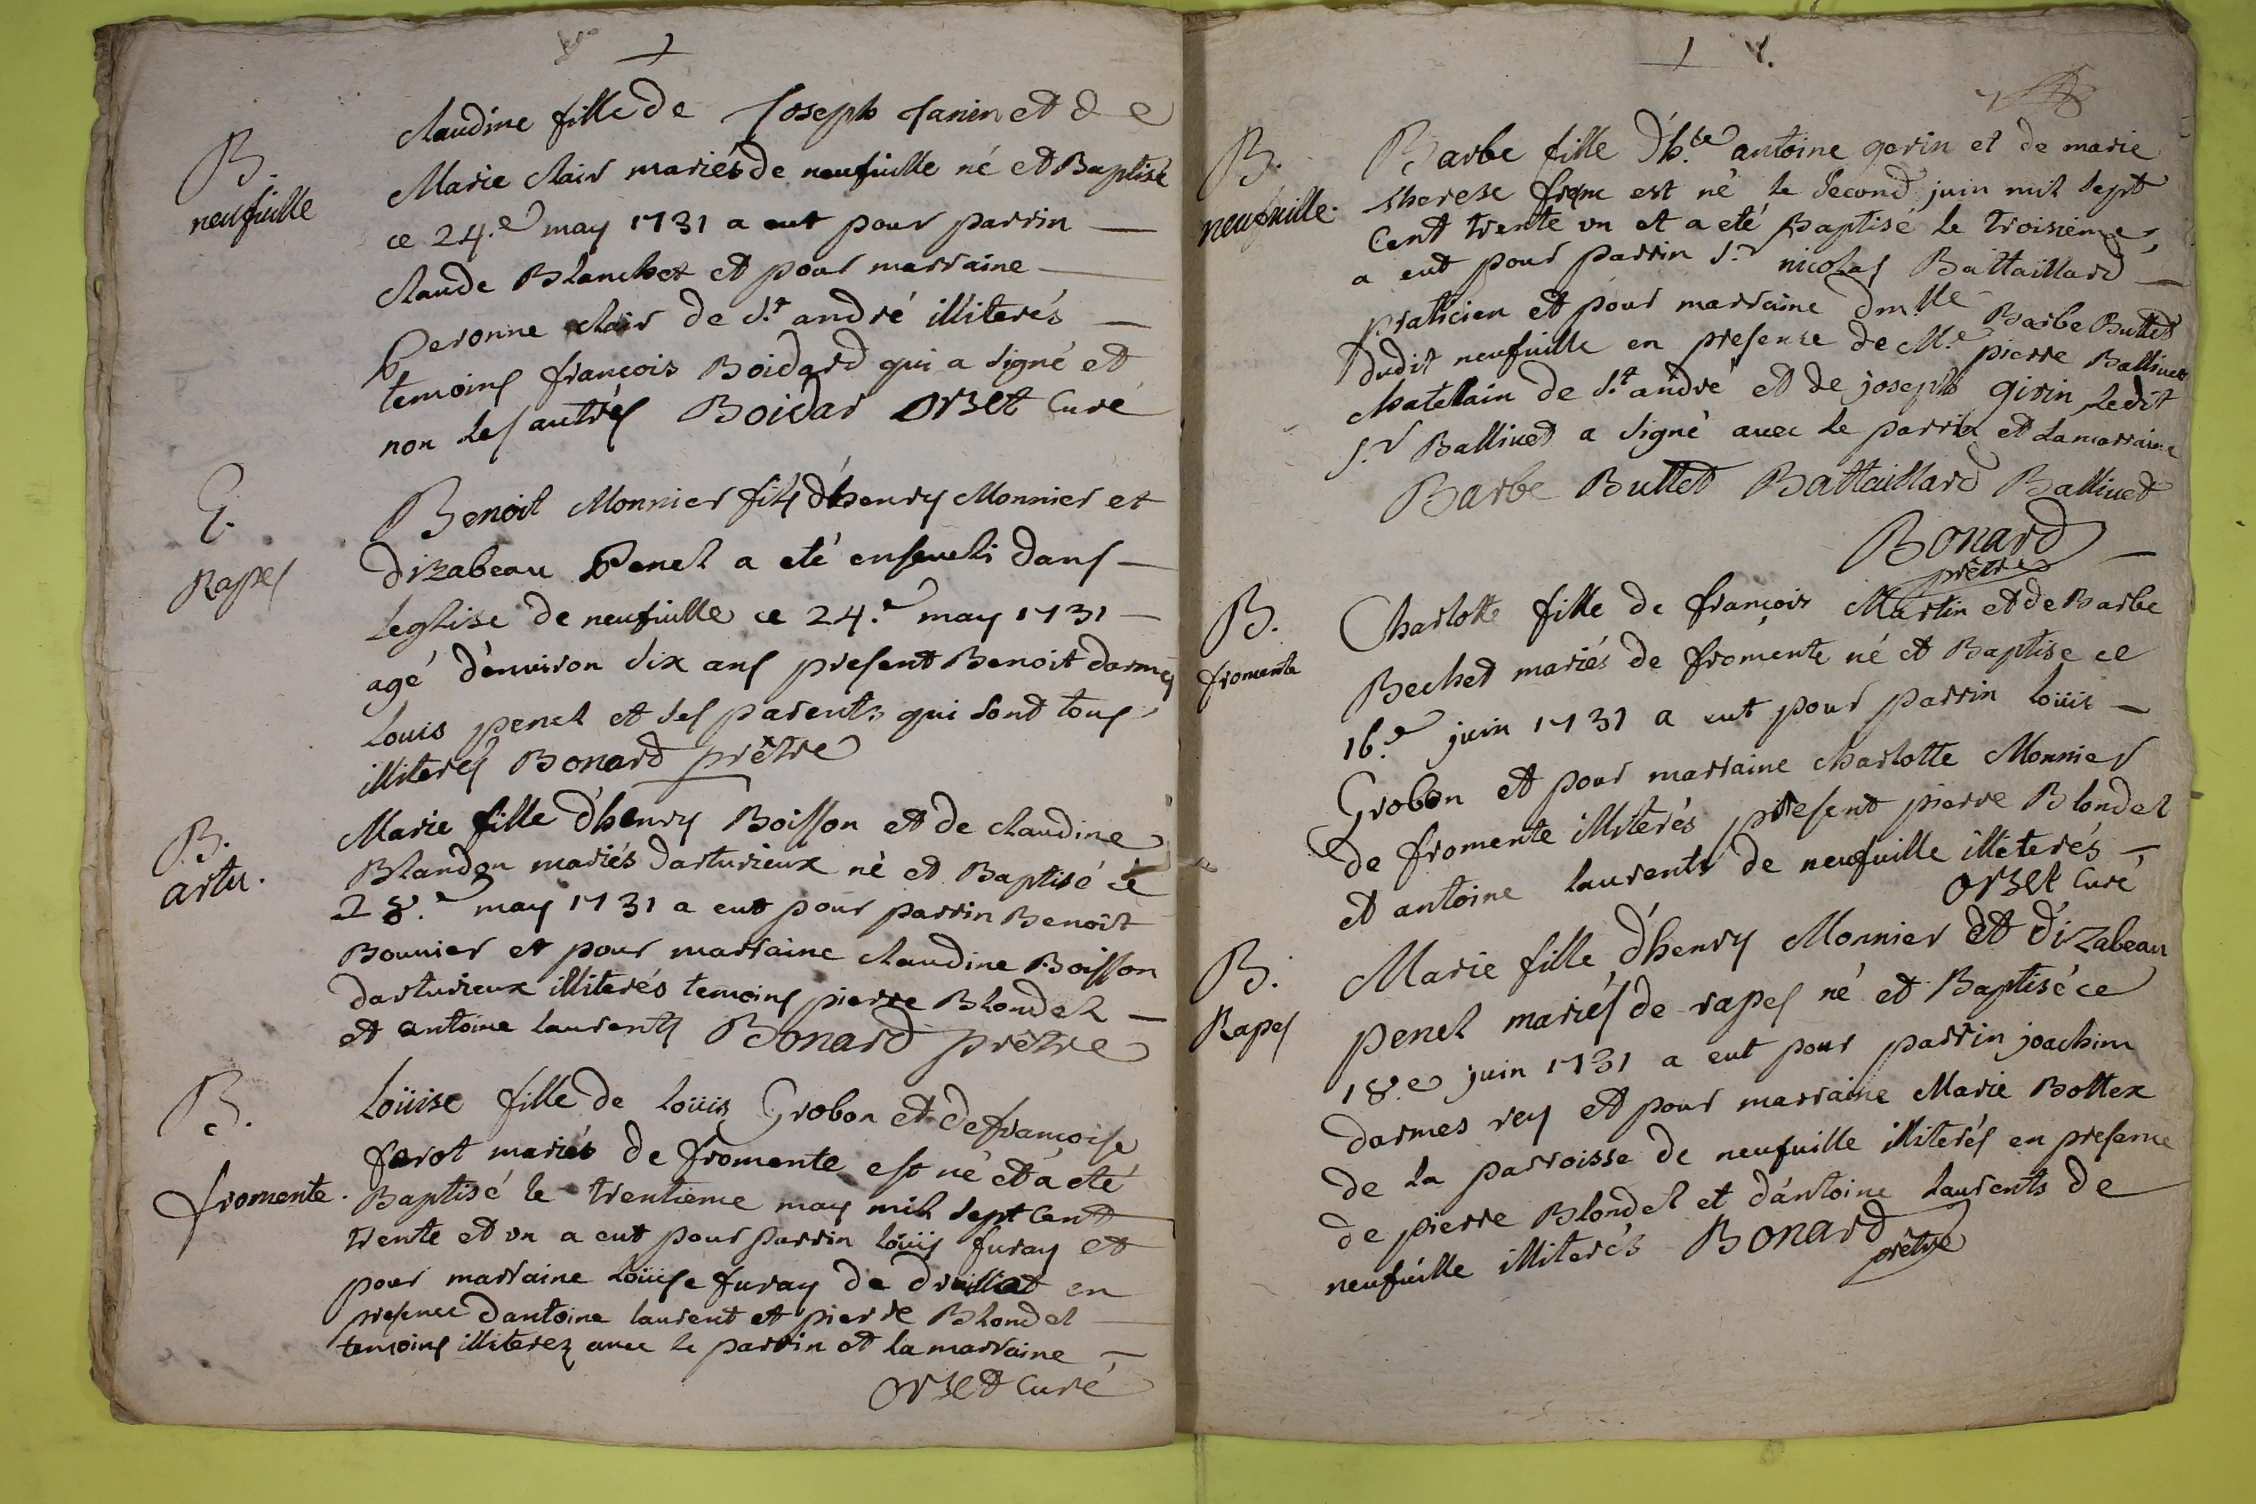 B.
neufuille
Claudine fille de Joseph Janin et de
Marie Clair mariés de neufuille né et Baptisé
ce 24.e may 1731 a eut pour parrin
claude Blanchet et pour marraine
Peronne clair de St andré illiterés
temoins françois Boidard qui a signé et
non les autres Boidar Orset Curé
E.
Rapes
Benoit Monnier fils d'henry Monnier et
dizabeau Penel a eté enseueli dans
leglise de neufuille ce 24.e may 1731
agé d'enuiron six ans present Benoit darmes
louis penel et ses parents qui sont tous
illiteres Bonard prêtre
B.
artu.
Marie fille d'henry Boisson et de claudine
Blandon mariés darturieux né et Baptisé ce
28.e may 1731 a eut pour parrin Benoît
Bouuier et pour marraine claudine Boisson
darturieux illiterés temoins pierre Blondel
et antoine laurents Bonard prêtre
B.
fromente.
loüise fille de loüis Grobon et de françoise
ferot mariés de fromente est né et a eté
Baptisé le trentieme may mil sept cent
trente et vn a eut pour parrin loüis furay et
pour marraine loüise furay de druillat en
presence dantoine laurent et pierre Blondel
temoins illiterez auec le parrin et la marraine
Orset Curé
B.
neufuille.
Barbe fille d'h.te antoine gorin et de marie
therese franc est né le second juin mil sept
cent trente vn et a eté Baptisé le troisieme,
a eut pour parrin S.r nicolas Battaillard
praticien et pour marraine dm.lle Barbe Buttet
dudit neufuille en presense de M.e pierre Balliuet
chatelain de S.t andré et de joseph girin ledit
S.r Balliuet a signé auec le parrin et la marraine
Barbe Buttet Battaillard Balliuet
Bonard
prêtre
B.
fromente
Charlotte fille de françois Martin et de Barbe
Bechet mariés de fromente né et Baptise ce
16.e juin 1731 a eut pour parrin loüis
Grobon et pour marraine charlotte Monnier
de fromente illiterés present pierre Blondel
et antoine laurents de neufuille illeterés
Orset Curé
B.
Rapes
Marie fille d'henry Monnier et d'izabeau
penel mariés de rapes né et Baptisé ce
18.e juin 1731 a eut pour parrin joachim
darmes rey et pour marraine Marie Bottex
de la parroisse de neufuille illiterés en presence
de pierre Blondel et d'antoine laurents de
neufuille illiterés Bonard
prêtre